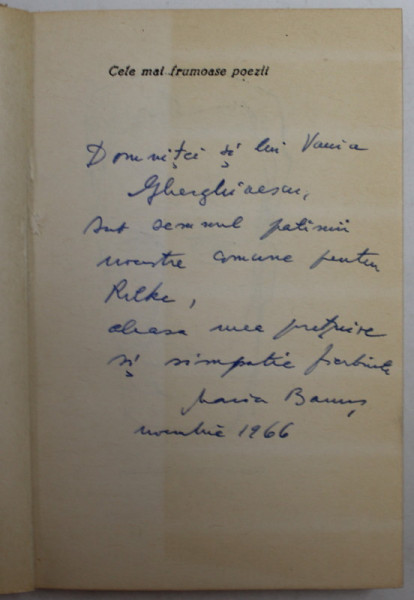 Cele mai frumoase poezii
Domniței și lui Vania
Gherghinescu,
sub semnul patimii
noastre comune pentru
Rilke,
aleasa mea prețuire
și simpatie fierbinte
Maria Banuș
noembrie 1966